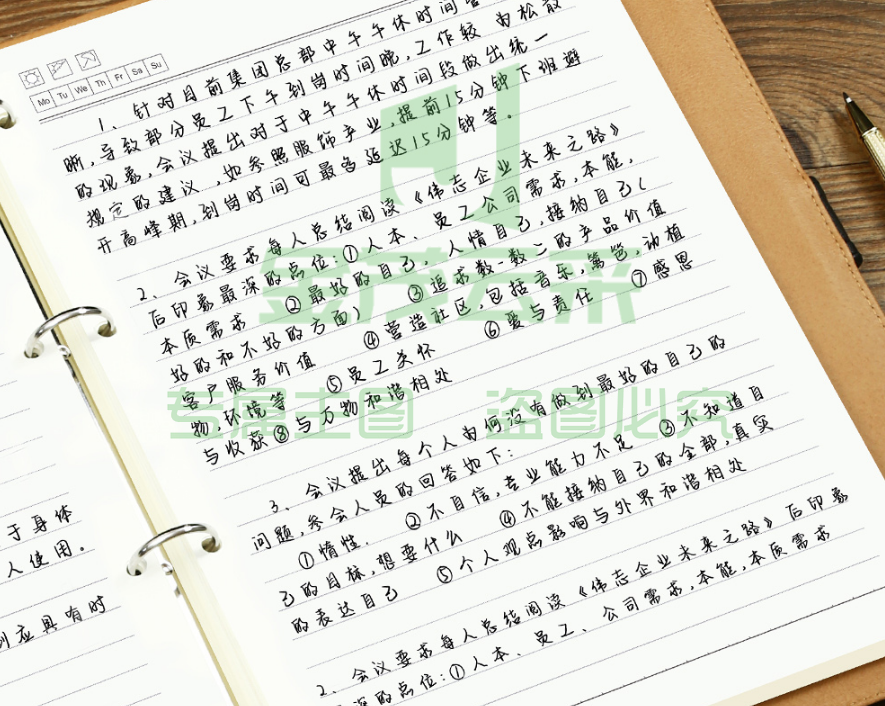 Mo Tu We Th Fr Sa Su
1、针对目前集团总部中午午休时间管
晰,导致部分员工下午到岗时间晚,工作较为松散
的现象,会议提出对于中午午休时间段做出统一
规定的建议,如参照服饰产业,提前15分钟下班避
开高峰期,到岗时间可最多延迟15分钟等。
2、会议要求每人总结阅读《伟志企业未来之路》
后印象最深的点位:①人本、员工公司需求,本能,
本质需求 ②最好的自己,人情自己,接纳自己(
好的和不好的方面) ③追求数一数二的产品价值
客户服务价值 ④营造社区,包括音乐,篱笆,动植
物,环境等 ⑤员工关怀 ⑥爱与责任 ⑦感恩
与收获⑧与万物和谐相处
3、会议提出每个人为何没有做到最好的自己的
问题,参会人员的回答如下:
①惰性. ②不自信,专业能力不足 ③不知道自
己的目标,想要什么 ④不能接纳自己的全部,真实
的表达自己 ⑤个人观点影响与外界和谐相处
2、会议要求每人总结阅读《伟志企业未来之路》后印象
深的点位:①人本、员工、公司需求,本能,本质需求
于身体
人使用。
应具有时
金茂云采
专属主图 盗图必究